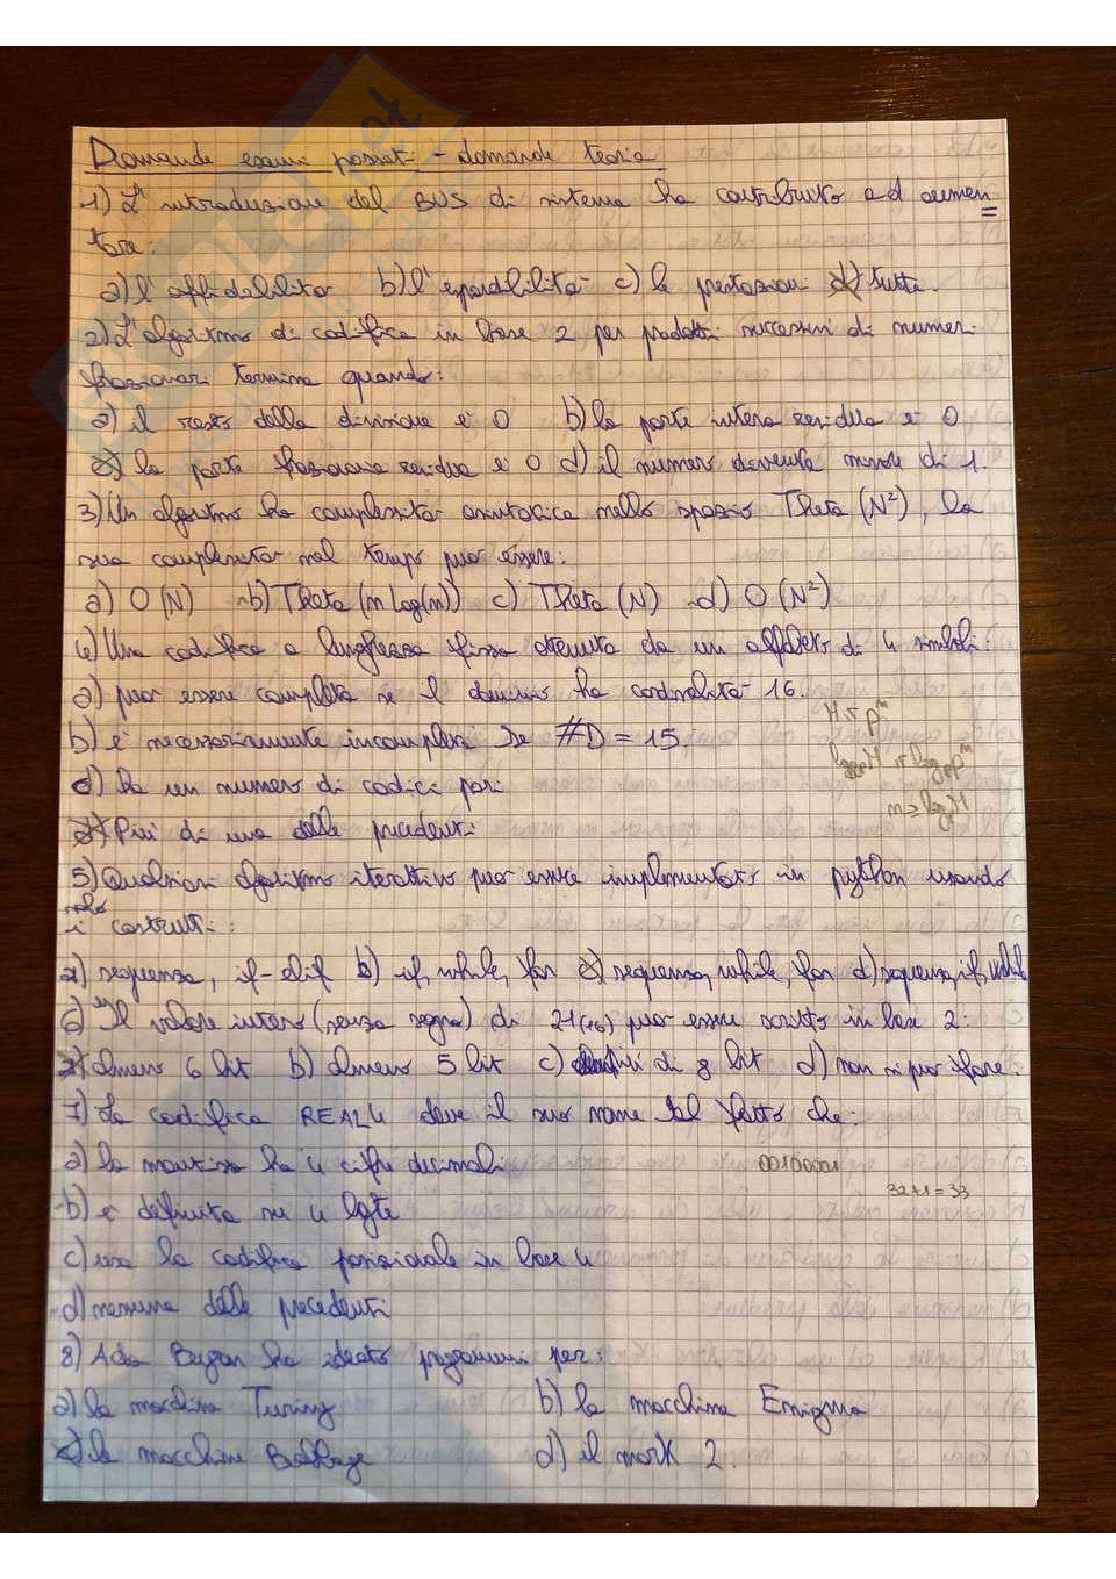 Domande esami passati - domande teoria
1) L'introduzione del BUS di sistema ha contribuito ad aumen
tare:
a) l'affidabilità b) l'espandibilità c) le prestazioni d) tutte.
2) L'algoritmo di codifica in base 2 per prodotti successivi di numeri
frazionari termina quando:
a) il resto della divisione è 0 b) la parte intera residua è 0
c) la parte frazionaria residua è 0 d) il numero diventa minore di 1.
3) Un algoritmo ha complessità asintotica nello spazio Theta (N²), la
sua complessità nel tempo può essere:
a) O(N) b) Theta (n log(n)) c) Theta (N) d) O(N²)
4) Una codifica a lunghezza fissa ottenuta da un alfabeto di 4 simboli:
a) può essere completa se il dominio ha cardinalità 16.
b) è necessariamente incompleta se #D = 15.
c) ha un numero di codici pari
d) Più di una delle precedenti
5) Qualsiasi algoritmo iterativo può essere implementato in python usando
solo
i costrutti:
a) sequenza, if-elif b) if, while, for c) sequenza, while, for d) sequenza, if, while
6) Il valore intero (senza segno) di 21(16) può essere scritto in base 2:
a) almeno 6 bit b) almeno 5 bit c) più di 8 bit d) non si può fare.
7) La codifica REAL4 deve il suo nome al fatto che:
a) la mantissa ha 4 cifre decimali
00100001
32+1=33
b) è definita su 4 byte
c) usa la codifica posizionale in base 4
d) nessuna delle precedenti
8) Ada Byron ha ideato programmi per:
a) la macchina Turing b) la macchina Enigma
c) la macchina Babbage d) il mark 2.